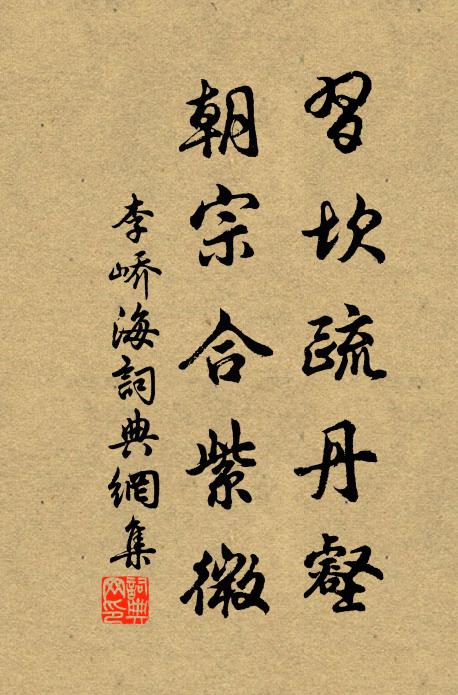 習坎疏丹壑
朝宗合紫微
李嶠海詞典網集
詞典網印